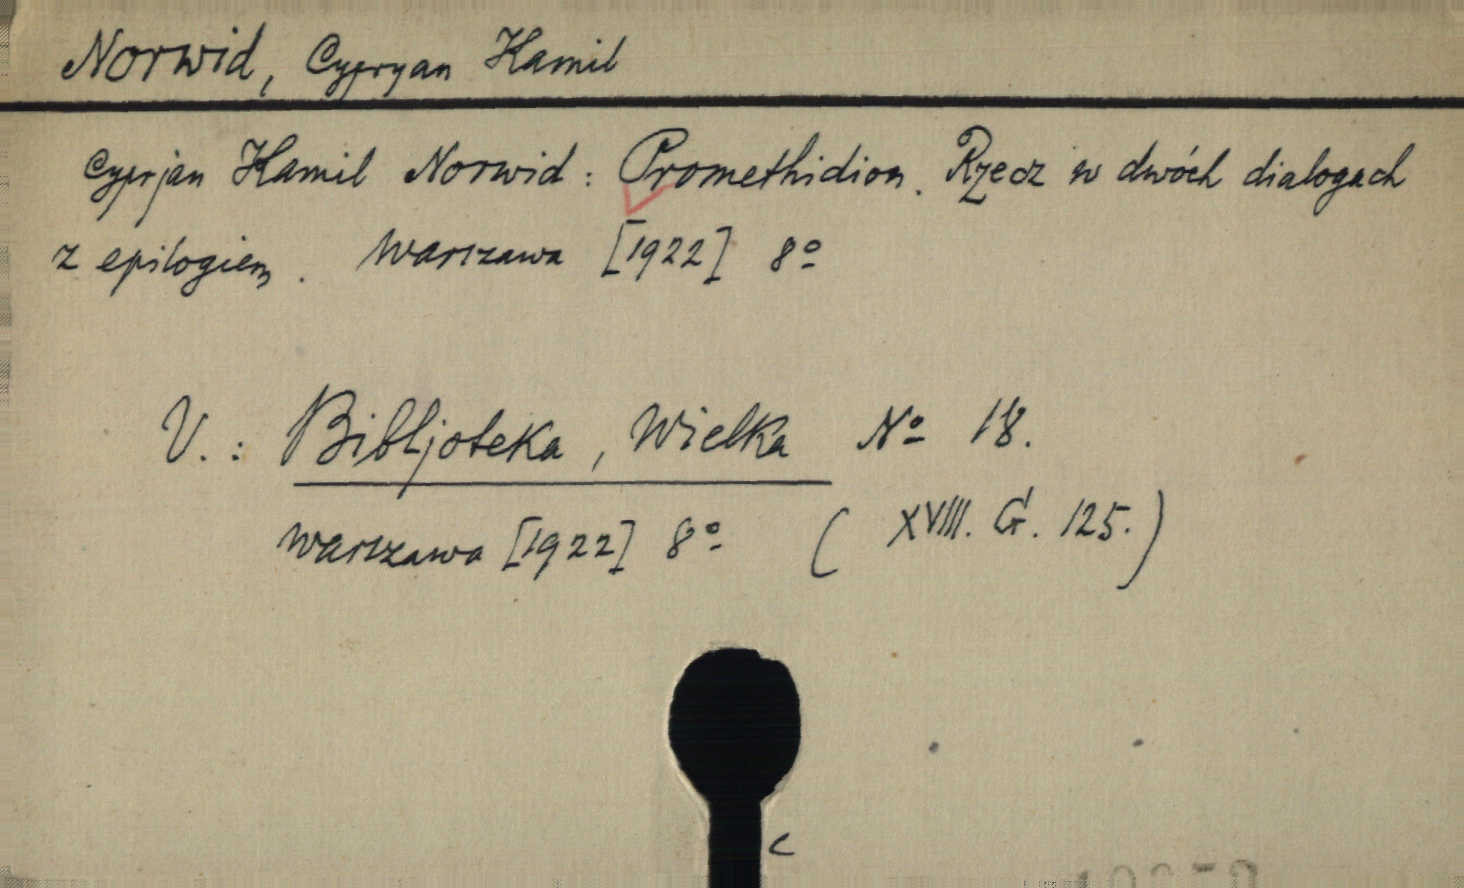 Norwid, Cypryan Kamil
Cyprjan Kamil Norwid: Promethidion. Rzecz w dwóch dialogach
z epilogiem. Warszawa [1922] 8º
V.: Bibljoteka, Wielka Nº 18.
Warszawa [1922] 8º (XVIII. G. 125.)
c